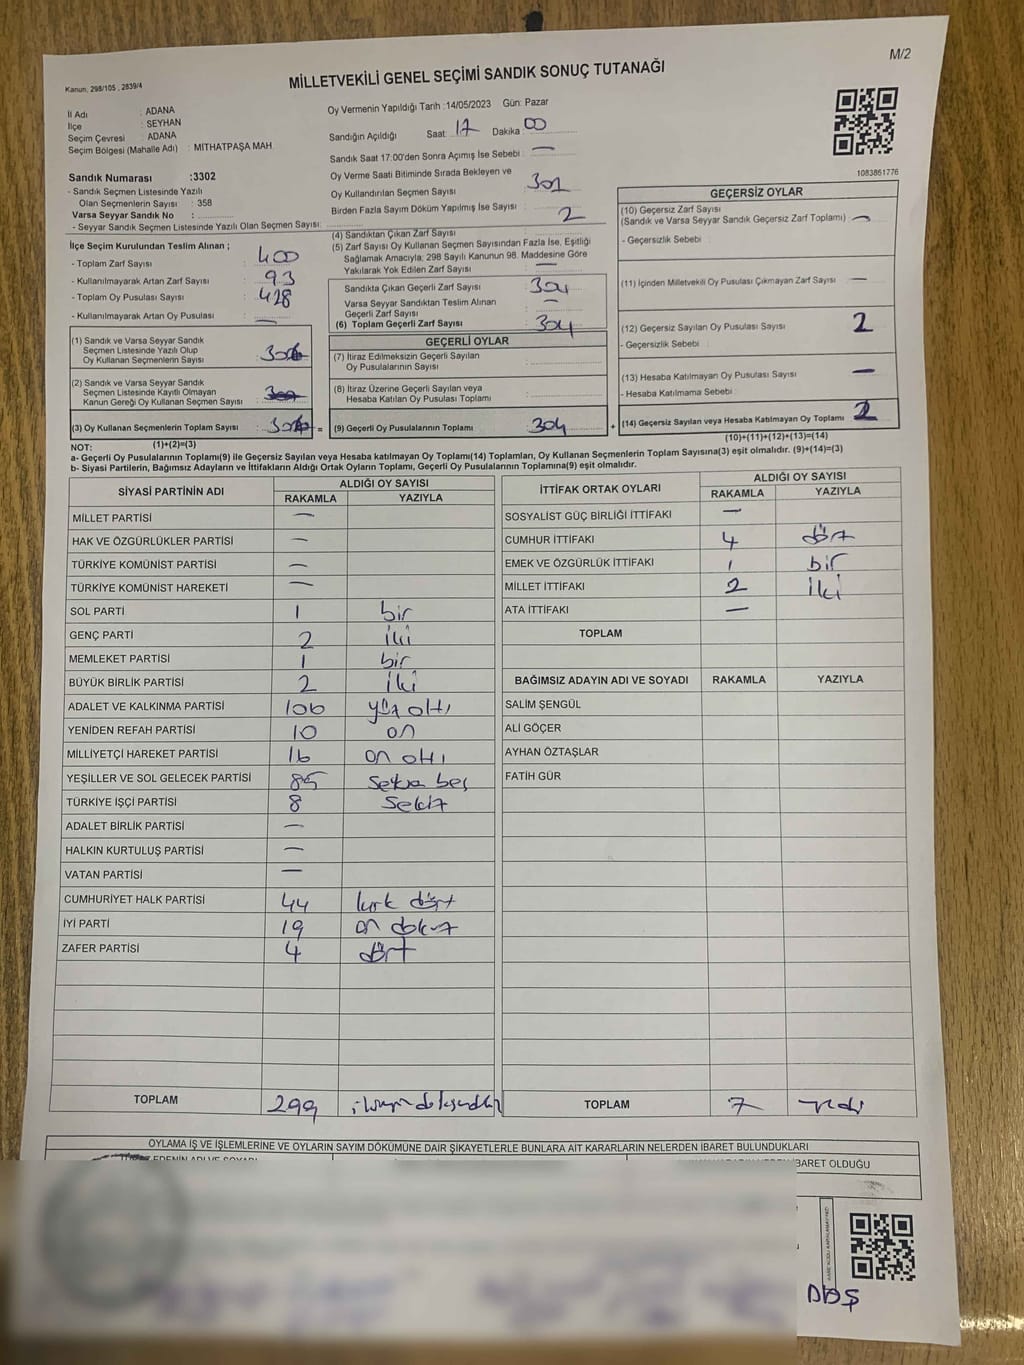 M/2
Kanun, 298/105 , 2839/4
MİLLETVEKİLİ GENEL SEÇİMİ SANDIK SONUÇ TUTANAĞI
İl Adı : ADANA
İlçe : SEYHAN
Seçim Çevresi : ADANA
Seçim Bölgesi (Mahalle Adı) : MİTHATPAŞA MAH.
Sandık Numarası :3302
- Sandık Seçmen Listesinde Yazılı
Olan Seçmenlerin Sayısı : 358
Varsa Seyyar Sandık No :
- Seyyar Sandık Seçmen Listesinde Yazılı Olan Seçmen Sayısı:
Oy Vermenin Yapıldığı Tarih :14/05/2023 Gün: Pazar
Sandığın Açıldığı Saat: 17 Dakika: 00
Sandık Saat 17:00'den Sonra Açımış İse Sebebi : —
Oy Verme Saati Bitiminde Sırada Bekleyen ve
Oy Kullandırılan Seçmen Sayısı :
Birden Fazla Sayım Döküm Yapılmış İse Sayısı : 2
1083861776
İlçe Seçim Kurulundan Teslim Alınan ;
- Toplam Zarf Sayısı : 400
- Kullanılmayarak Artan Zarf Sayısı : 93
- Toplam Oy Pusulası Sayısı : 428
- Kullanılmayarak Artan Oy Pusulası : —
(1) Sandık ve Varsa Seyyar Sandık
Seçmen Listesinde Yazılı Olup
Oy Kullanan Seçmenlerin Sayısı :
(2) Sandık ve Varsa Seyyar Sandık
Seçmen Listesinde Kayıtlı Olmayan
Kanun Gereği Oy Kullanan Seçmen Sayısı :
(3) Oy Kullanan Seçmenlerin Toplam Sayısı : =
(4) Sandıktan Çıkan Zarf Sayısı :
(5) Zarf Sayısı Oy Kullanan Seçmen Sayısından Fazla İse, Eşitliği
Sağlamak Amacıyla; 298 Sayılı Kanunun 98. Maddesine Göre
Yakılarak Yok Edilen Zarf Sayısı : —
Sandıkta Çıkan Geçerli Zarf Sayısı : 304
Varsa Seyyar Sandıktan Teslim Alınan
Geçerli Zarf Sayısı : —
(6) Toplam Geçerli Zarf Sayısı : 304
GEÇERLİ OYLAR
(7) İtiraz Edilmeksizin Geçerli Sayılan
Oy Pusulalarının Sayısı :
(8) İtiraz Üzerine Geçerli Sayılan veya
Hesaba Katılan Oy Pusulası Toplamı :
(9) Geçerli Oy Pusulalarının Toplamı : 304 +
GEÇERSİZ OYLAR
(10) Geçersiz Zarf Sayısı
(Sandık ve Varsa Seyyar Sandık Geçersiz Zarf Toplamı) : —
- Geçersizlik Sebebi :
(11) İçinden Milletvekili Oy Pusulası Çıkmayan Zarf Sayısı : —
(12) Geçersiz Sayılan Oy Pusulası Sayısı : 2
- Geçersizlik Sebebi :
(13) Hesaba Katılmayan Oy Pusulası Sayısı : —
- Hesaba Katılmama Sebebi :
(14) Geçersiz Sayılan veya Hesaba Katılmayan Oy Toplamı : 2
(10)+(11)+(12)+(13)=(14)
NOT: (1)+(2)=(3)
a- Geçerli Oy Pusulalarının Toplamı(9) ile Geçersiz Sayılan veya Hesaba katılmayan Oy Toplamı(14) Toplamları, Oy Kullanan Seçmenlerin Toplam Sayısına(3) eşit olmalıdır. (9)+(14)=(3)
b- Siyasi Partilerin, Bağımsız Adayların ve İttifakların Aldığı Ortak Oyların Toplamı, Geçerli Oy Pusulalarının Toplamına(9) eşit olmalıdır.
SİYASİ PARTİNİN ADI ALDIĞI OY SAYISI
RAKAMLA YAZIYLA
MİLLET PARTİSİ —
HAK VE ÖZGÜRLÜKLER PARTİSİ —
TÜRKİYE KOMÜNİST PARTİSİ —
TÜRKİYE KOMÜNİST HAREKETİ —
SOL PARTİ 1 bir
GENÇ PARTİ 2 iki
MEMLEKET PARTİSİ 1 bir
BÜYÜK BİRLİK PARTİSİ 2 iki
ADALET VE KALKINMA PARTİSİ 106 yüz altı
YENİDEN REFAH PARTİSİ 10 on
MİLLİYETÇİ HAREKET PARTİSİ 16 on altı
YEŞİLLER VE SOL GELECEK PARTİSİ 85 seksen beş
TÜRKİYE İŞÇİ PARTİSİ 8 sekiz
ADALET BİRLİK PARTİSİ —
HALKIN KURTULUŞ PARTİSİ —
VATAN PARTİSİ —
CUMHURİYET HALK PARTİSİ 44 kırk dört
İYİ PARTİ 19 on dokuz
ZAFER PARTİSİ 4 dört
TOPLAM 299
İTTİFAK ORTAK OYLARI ALDIĞI OY SAYISI
RAKAMLA YAZIYLA
SOSYALİST GÜÇ BİRLİĞİ İTTİFAKI —
CUMHUR İTTİFAKI 4 dört
EMEK VE ÖZGÜRLÜK İTTİFAKI 1 bir
MİLLET İTTİFAKI 2 iki
ATA İTTİFAKI —
TOPLAM
BAĞIMSIZ ADAYIN ADI VE SOYADI RAKAMLA YAZIYLA
SALİM ŞENGÜL
ALİ GÖÇER
AYHAN ÖZTAŞLAR
FATİH GÜR
TOPLAM 7 yedi
OYLAMA İŞ VE İŞLEMLERİNE VE OYLARIN SAYIM DÖKÜMÜNE DAİR ŞİKAYETLERLE BUNLARA AİT KARARLARIN NELERDEN İBARET BULUNDUKLARI
BARET OLDUĞU